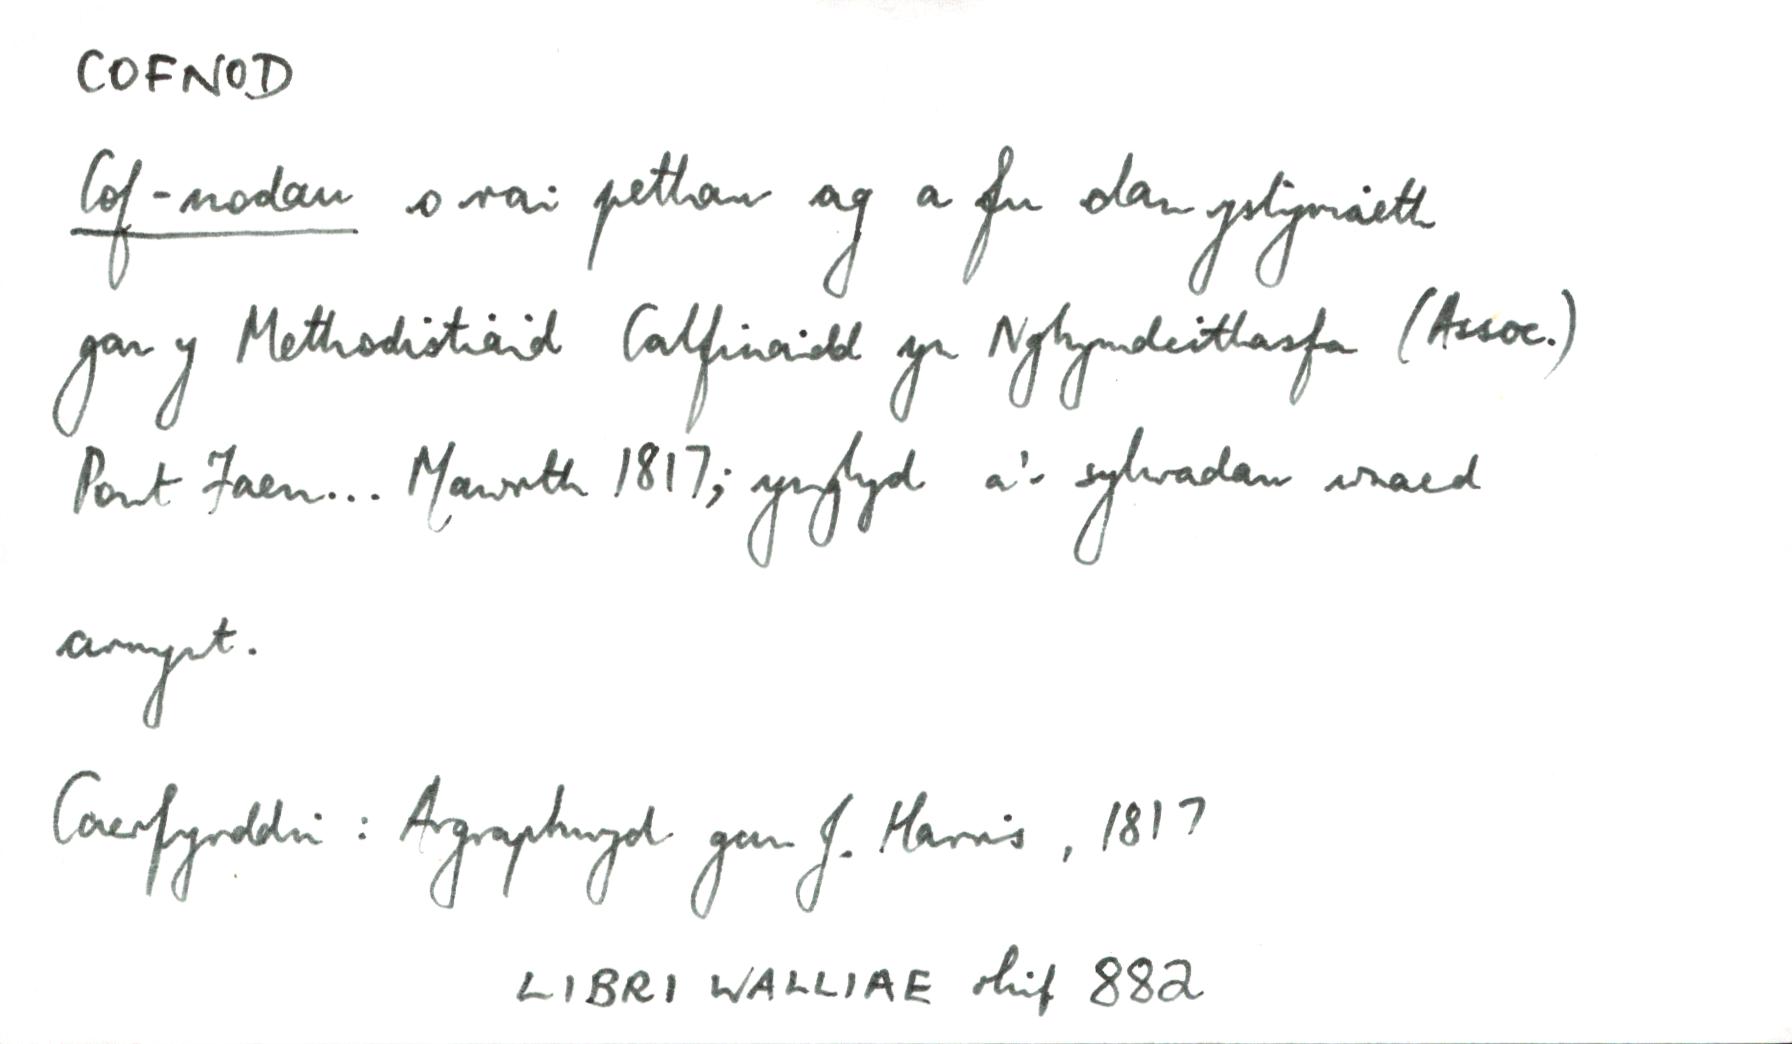 COFNOD
Cof-nodau o rai pethau ag a fu dan ystyriaeth
gan y Methodistiaid Calfinaidd yn Nghymdeithasfa (Assoc.)
Pont Faen... Mawrth 1817; ynghyd a'r sylwadau wnaed
arnynt.
Caerfyrddin : Argraphwyd gan J. Harris, 1817
LIBRI WALLIAE rhif 882